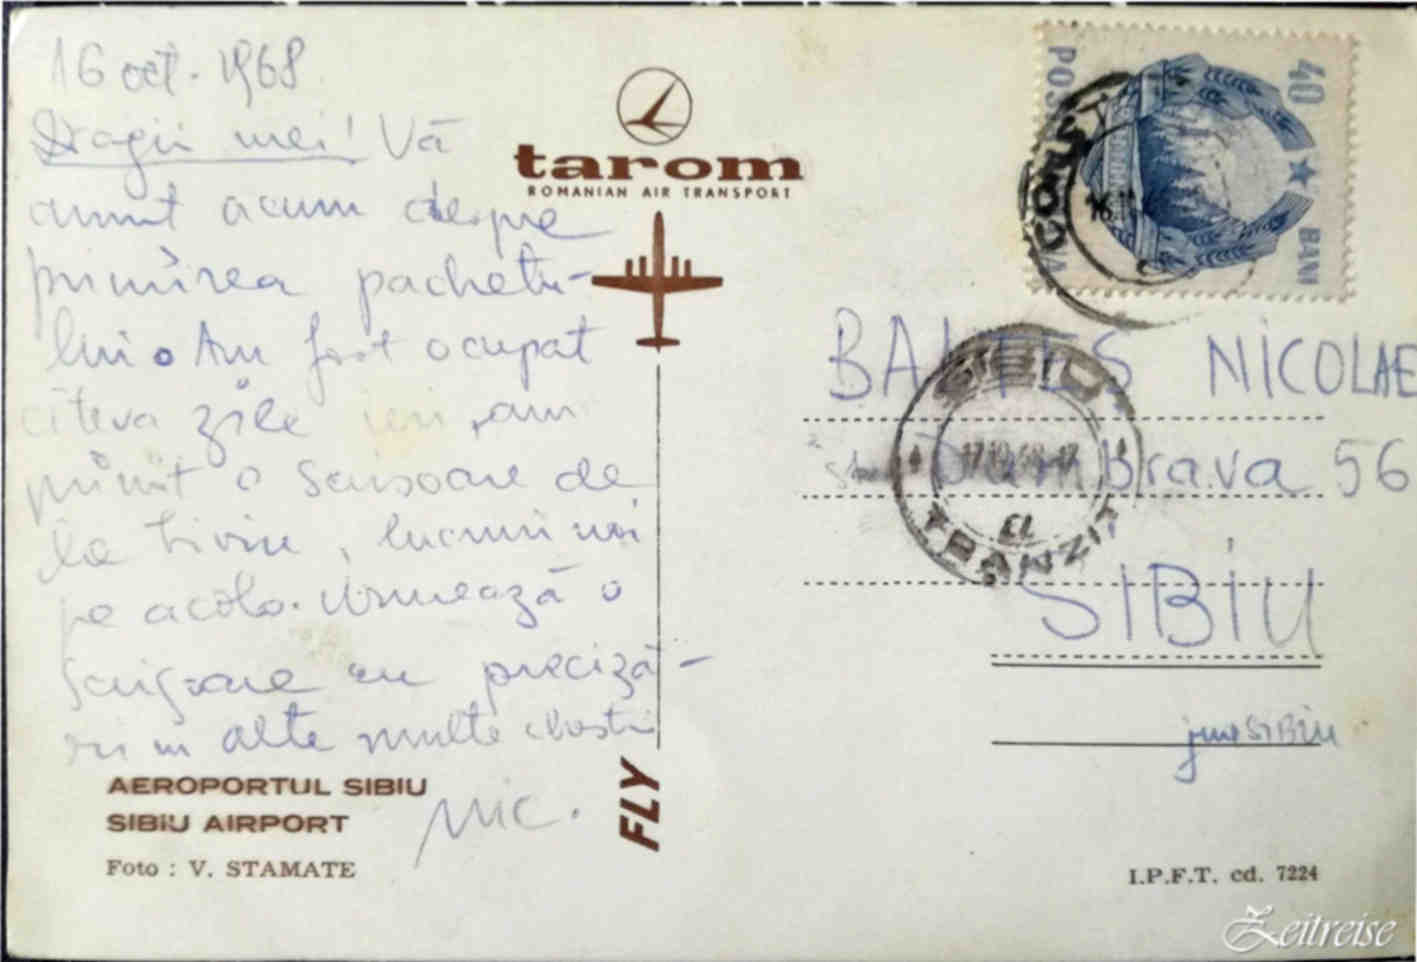 16 oct. 1968
Dragii mei! Vă
anunt acum despre
primirea pachetu-
lui. Am fost ocupat
cîteva zile ieri, am
primit o scrisoare de
la Liviu, lucruri noi
pe acolo. Urmează o
scrisoare cu preciză-
ri in alte multe chestii
Nic.
AEROPORTUL SIBIU
SIBIU AIRPORT
Foto : V. STAMATE
tarom
ROMANIAN AIR TRANSPORT
FLY
POSTA
40 BANI
16
SIBIU
17.10.68.17
CL
TRANZIT
BALTES NICOLAE
Dumbrava 56
SIBIU
jud SIBIU
I.P.F.T. cd. 7224
Zeitreise